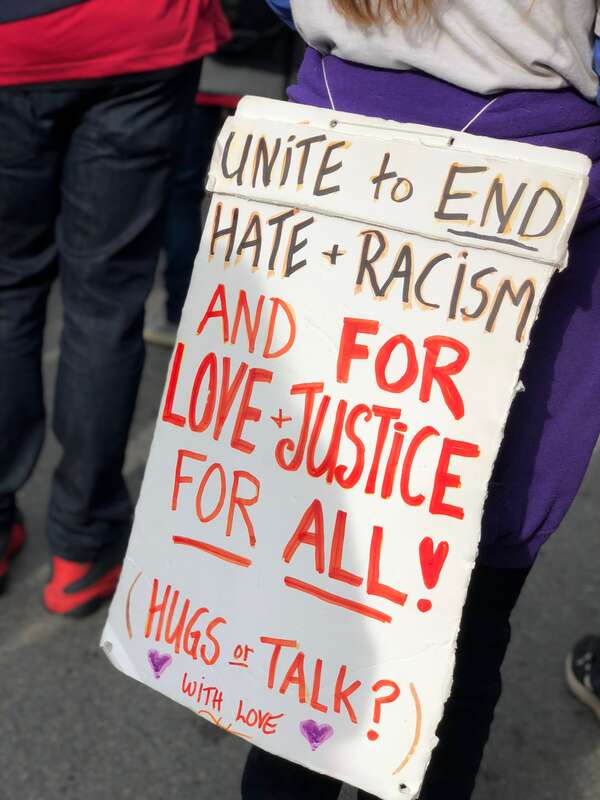 UNiTE to END
HATE + RACiSM
AND FOR
LOVE + JUSTiCE
FOR ALL!
(HUGS or TALK?)
WiTH LOVE